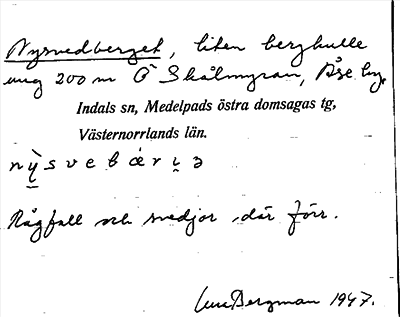 Nysvedberget, liten bergkulle
ung 200 m Ö Skålmyran, Åse by,
Indals sn, Medelpads östra domsagas tg,
Västernorrlands län.
nỳsvebár
Rågfall och svedjor där förr.
Bergman 1947.